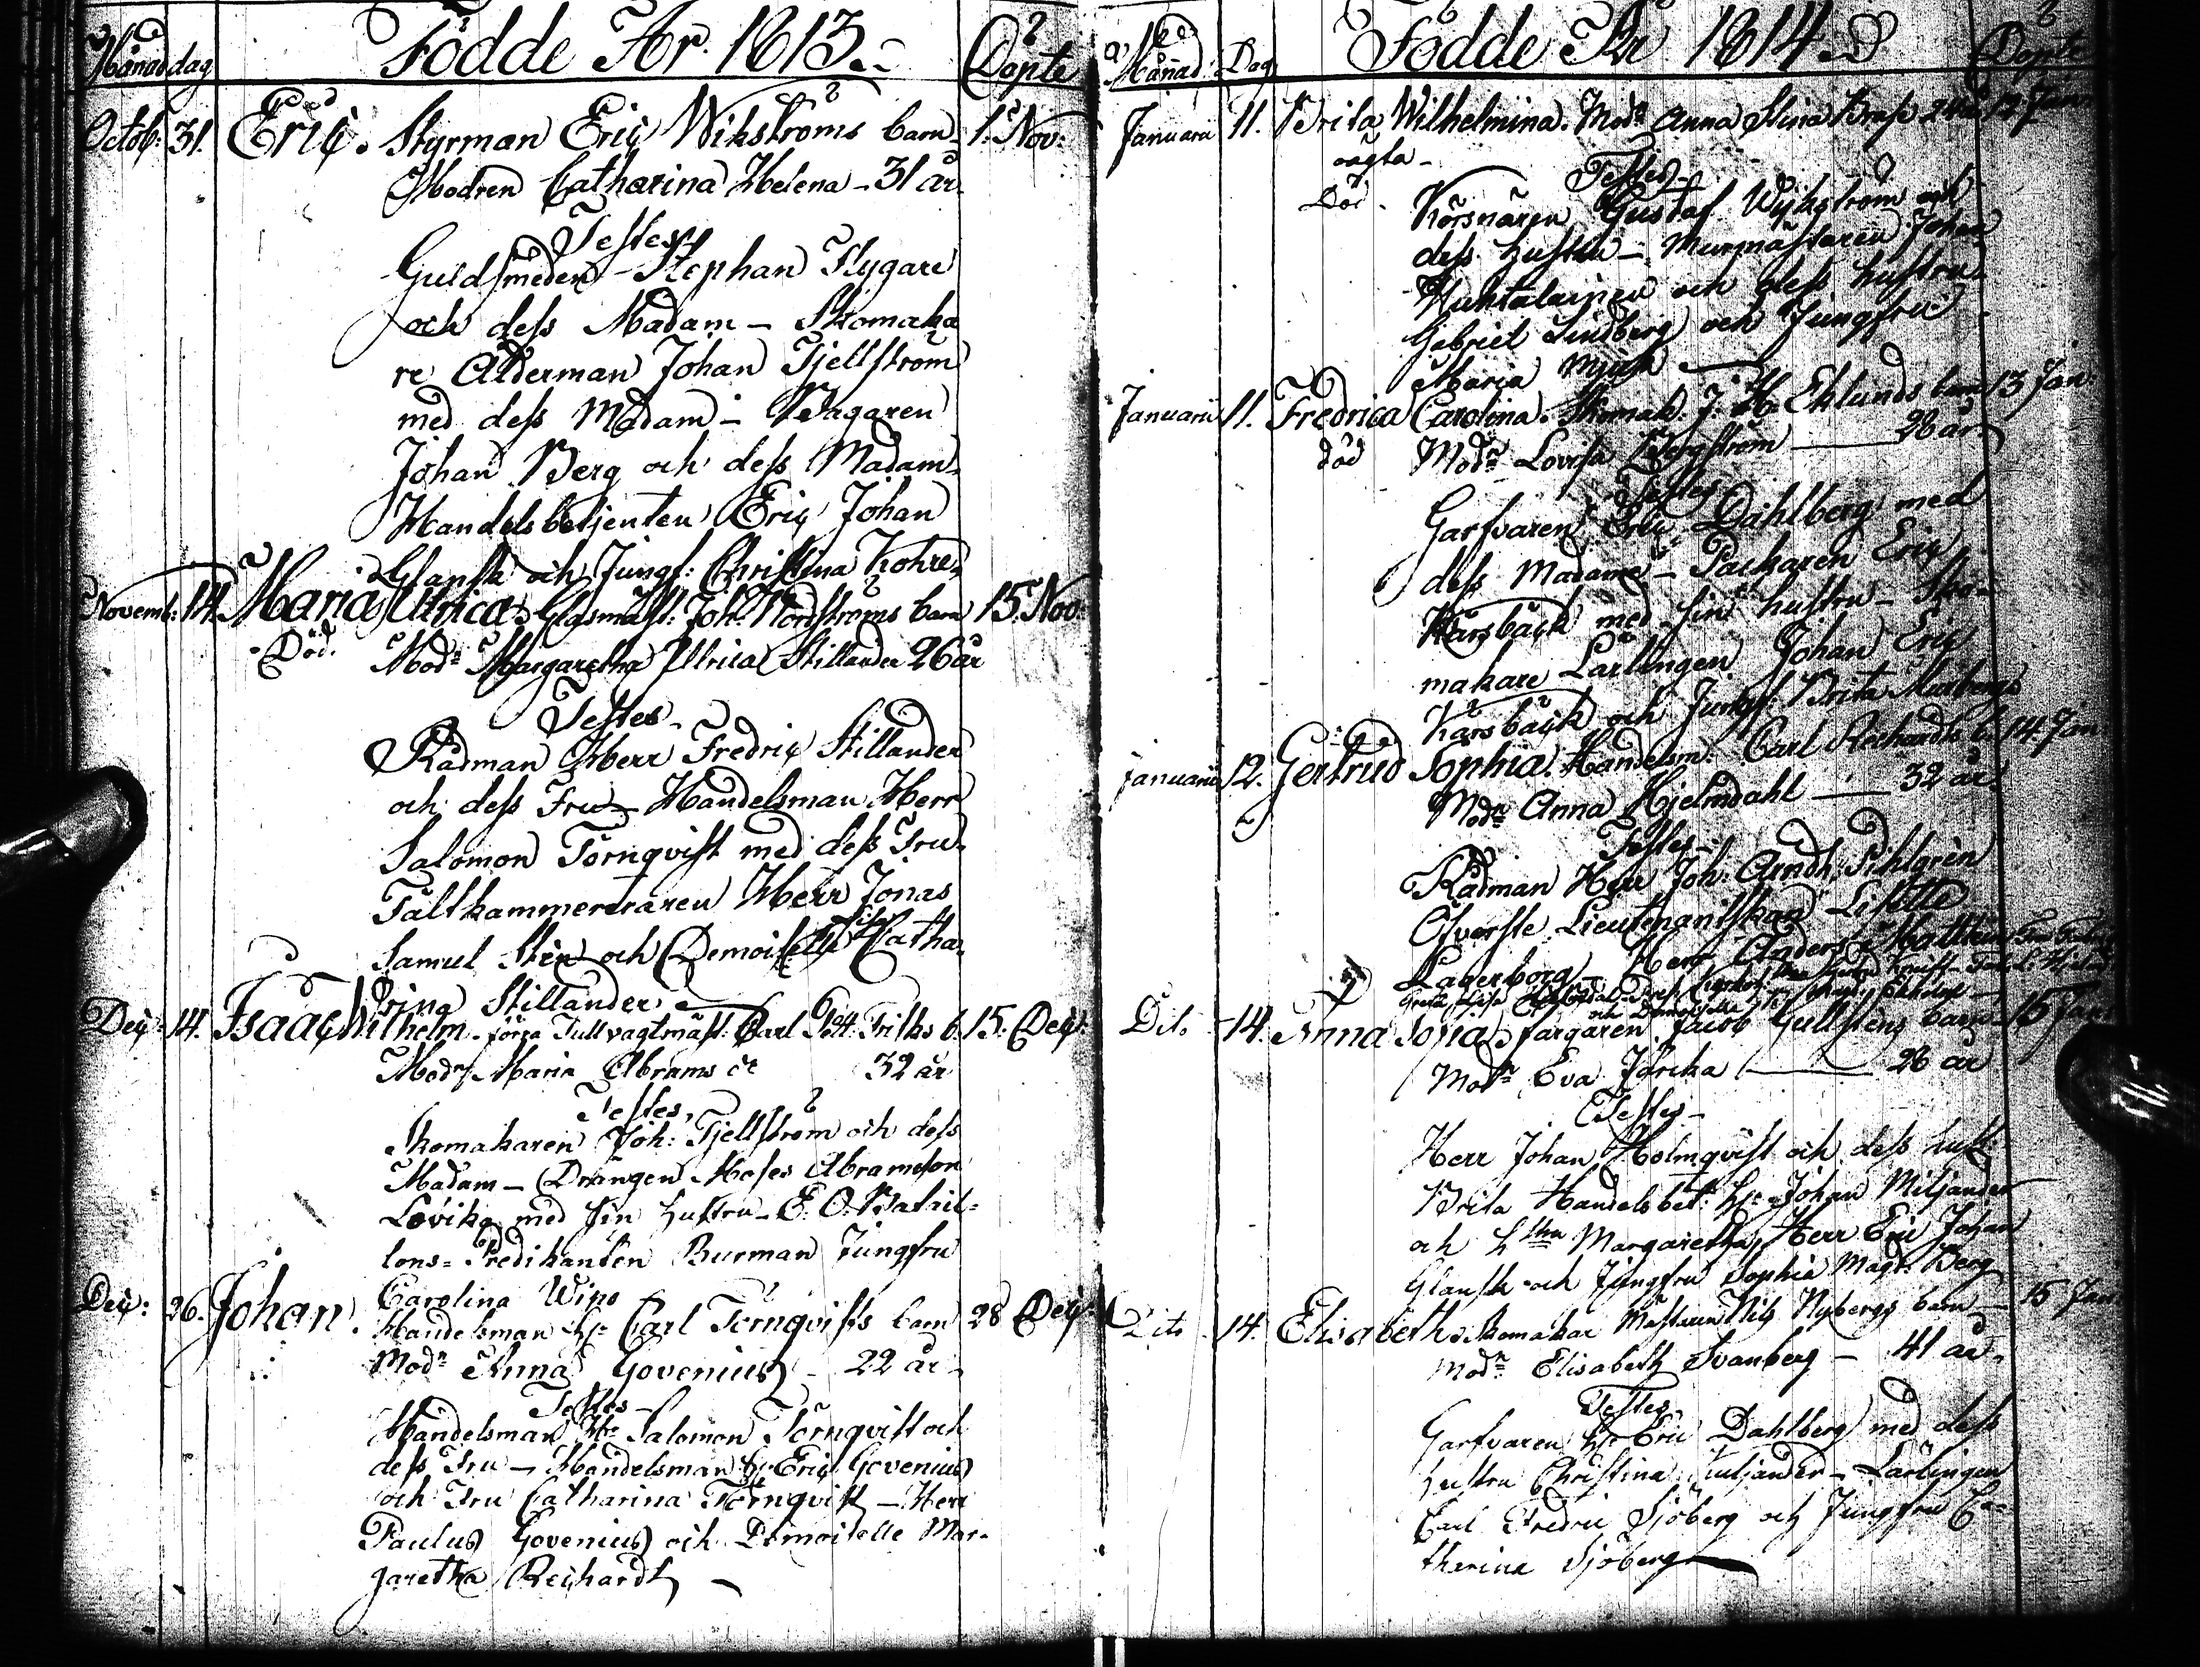 Månad dag Födde År. 1813. Döpte
Octob: 31. Eric. Styrman Eric Wikströms barn 1. Nov:
Modren Catharina Helena - 31 år
Testes
Guldsmeden - Stephan Flygare
och dess Madam - Skomaka
re Ålderman Johan Tjellström
med dess Madam -
Johan Berg och dess Madam
Handelsbetjenten Eric Johan
Glansk och Jungf: Christina
Novemb: 14. Maria Ulrica. Glasmäst: Joh: Nordströms barn 15. Nov:
Död. Modn Margaretha Ulrica Stillander 26 år
Testes -
Rådman Herr Fredric Stillander
och dess Fru - Handelsman Herr
Salomon Törnqvist med dess Fru
Fältkammereraren Herr Jonas
Samuel och Demoiselle Catha-
rina Stillander
Dec: 14. Isaac Wilhelm. förra Tullvagtmäst: Carl b. 15. Dec:
Modr Maria Abrams dr 32 år
Testes,
Skomakaren Joh: Tjellström och dess
Madam - Drängen Moses Abramsson
Lovika med sin hustru - E. O. Batail-
lons-Predikanten Burman Jungfru
Carolina
Dec: 26. Johan. Handelsman Hr Carl Törnqvists barn 28 Dec:
Modn Anna Govenius - 22 år -
Testes -
Handelsman Hr Salomon Törnqvist och
dess Fru - Handelsman Hr Eric Govenius
och Fru Catharina Törnqvist - Herr
Paulus Govenius och Demoiselle Mar-
garetha Reichardt -
Månad: Dag Födde År 1814. Döpte
Januarii 11. Brita Wilhelmina. Modn Anna Stina 12 Jan:
oägta -
Testes -
Död. Körsnären Gustaf Wijkström och
dess hustru - Murmästaren Johan
Huhtalainen och dess hustru
Gabriel Lindberg och Jungfru
Maria
Januarii 11. Fredrica Carolina. Skomak: J: H: Eklunds barn 13 Jan:
död Modn Lovisa Bergström 28 år
Testes
Garfvaren Eric Dahlberg med
dess Madame - Packaren Eric
Kårsbäck med sin hustru - Sko-
makare Lärlingen Johan Eric
Kårsbäck och Jungf: Brita
Januarii 12. Gertrud Sophia. Handelsm: Carl Reichardts b. 14. Jan
Modn Anna Hjelmdahl - 32 år
Testes -
Rådman Herr Joh: Arndt Pihlgren
Öfverste Lieutenantskan Lisette
Lagerborg - Herr Anders
Dito - 14. Anna Sofia. färgaren Jacob Gullstens barn - 15 Jan
Modn Eva Ulrika 28 år
Testes -
Herr Johan Holmqvist och dess hust:
Brita Handelsbet: Hr Johan Miljander
och hstru Margaretha, Herr Eric Johan
Glansk och Jungfru Sophia Magd: Berg
Dito 14. Elisabeth. Skomakar Mästaren Nils Nybergs barn - 15 Jan:
Modn Elisabeth Svanberg - 41 år.
Testes
Garfvaren Hr Eric Dahlberg med dess
hustru Christina - Lärlingen
Carl Fredric Sjöberg och Jungfru Ca-
tharina Sjöberg